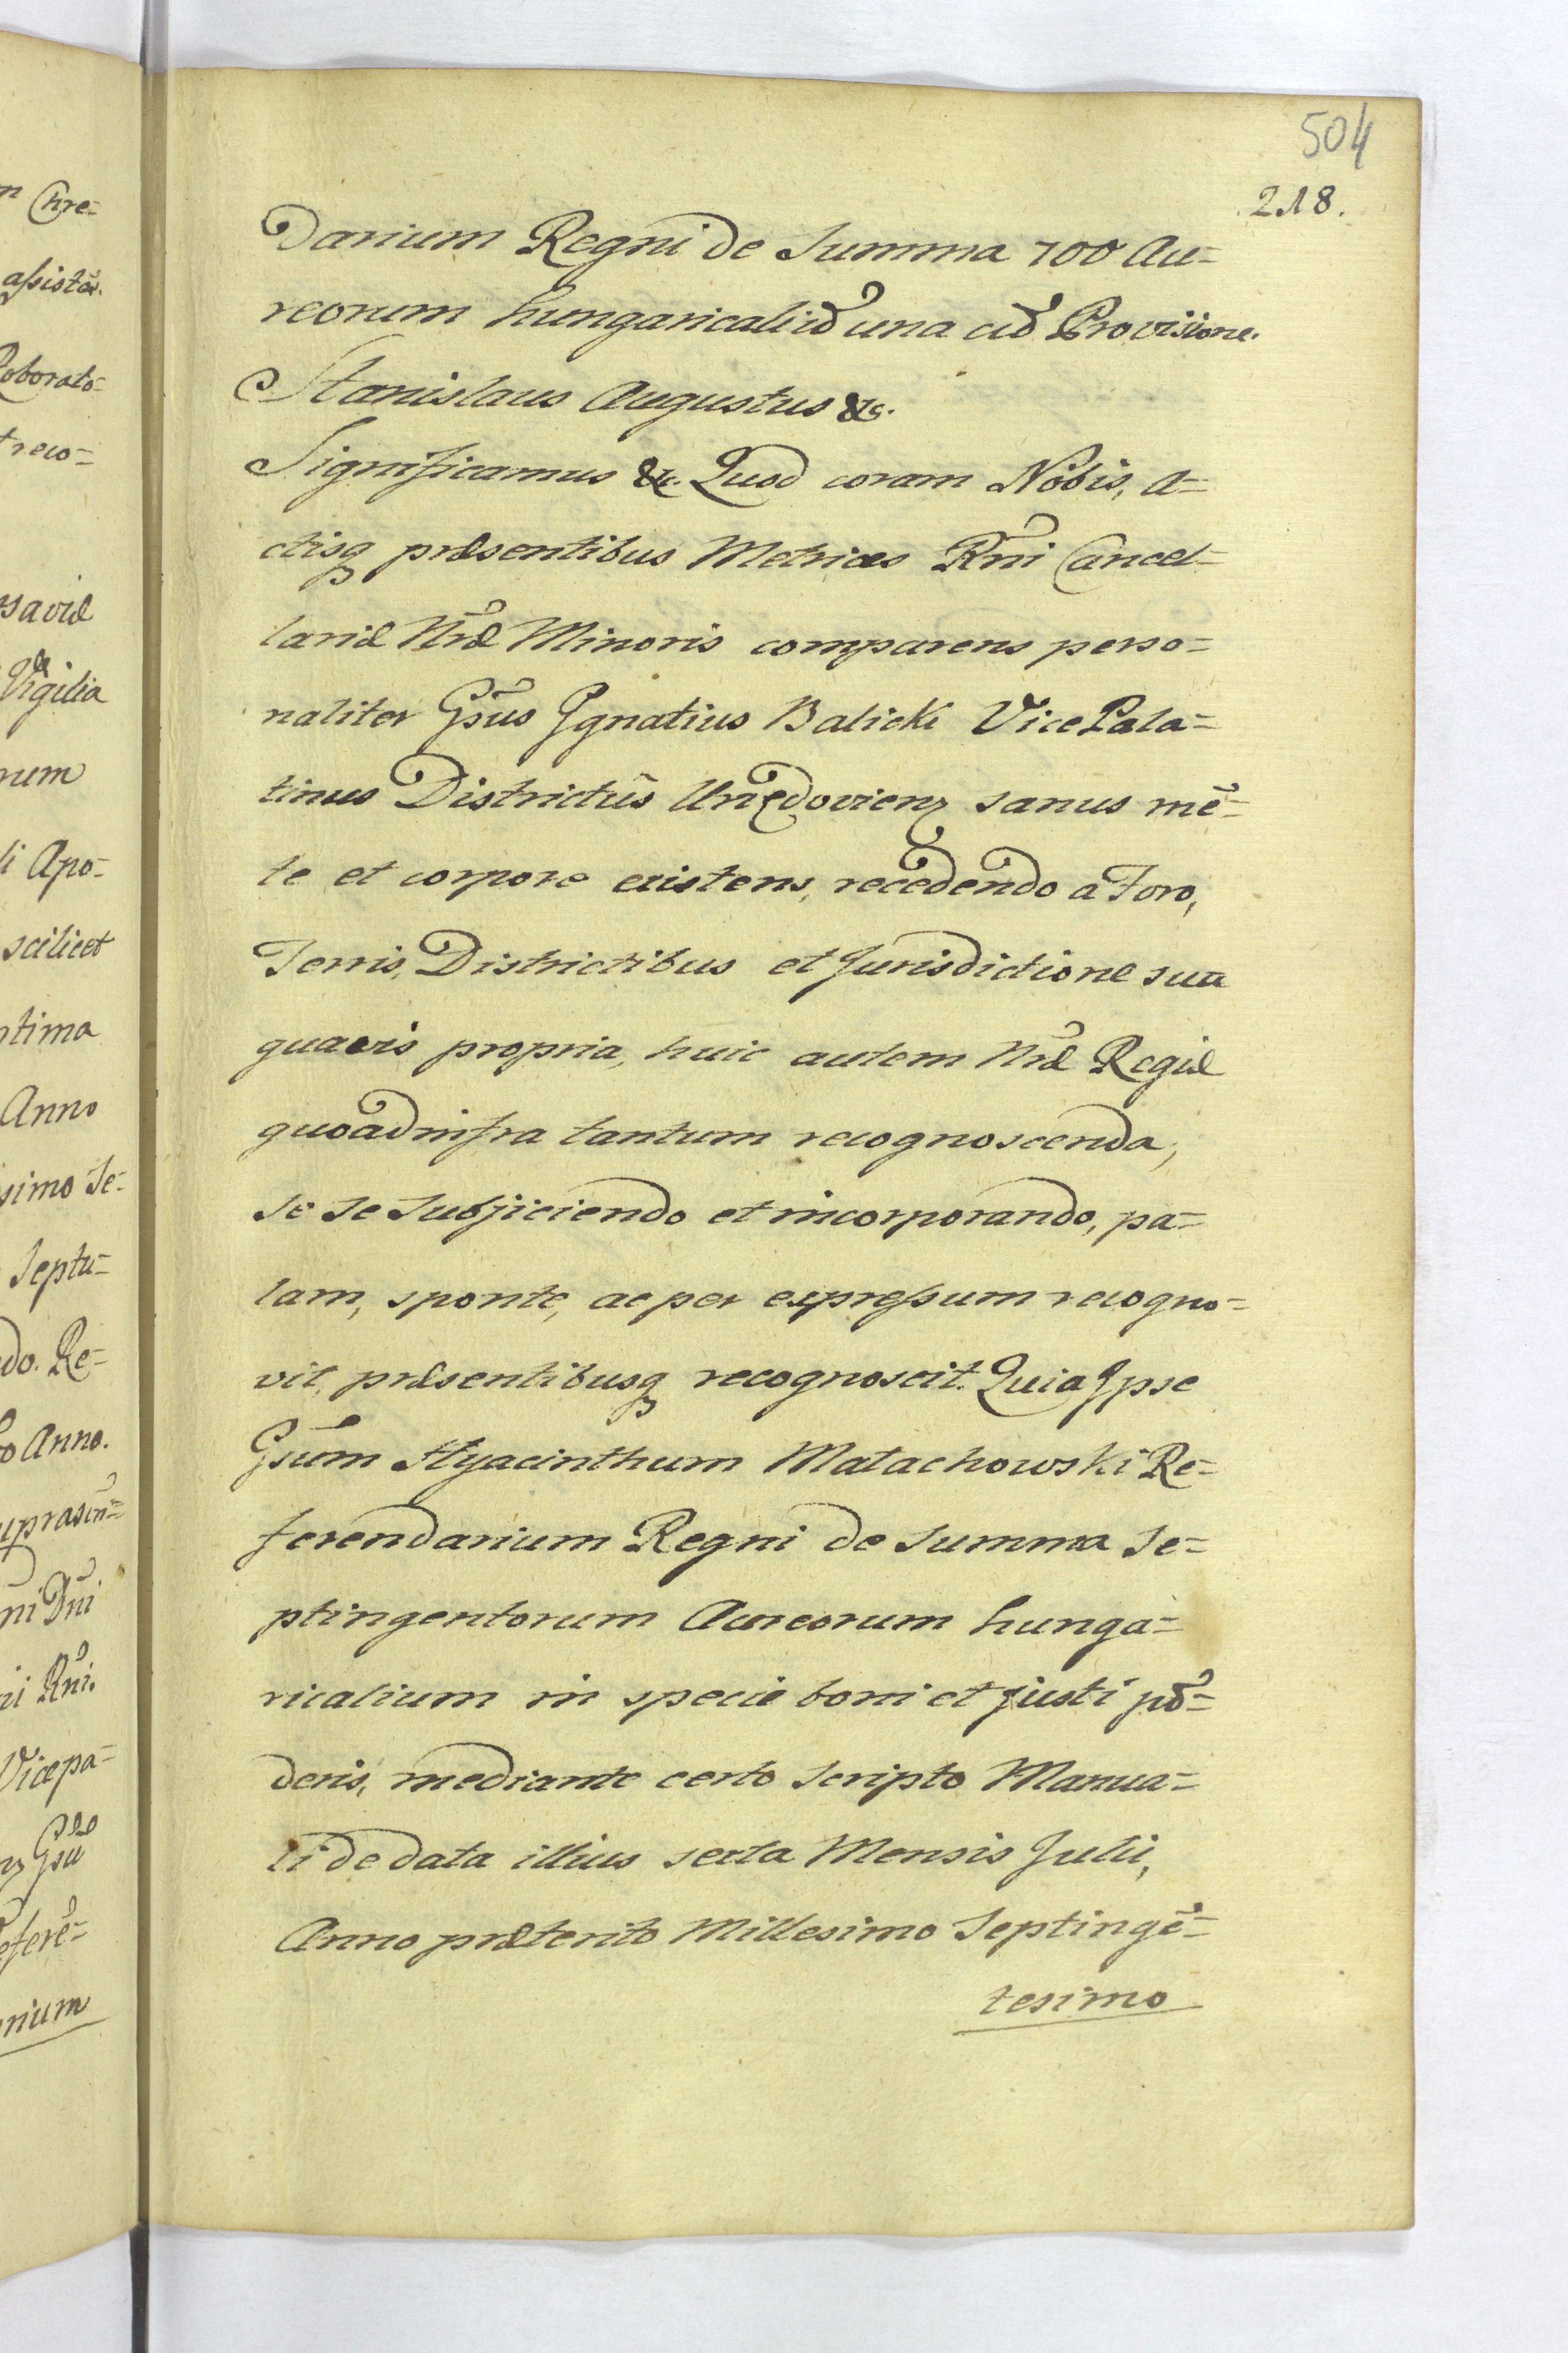 504
218.
darium Regni de Summa 700 Au=
reorum hungaricaliū una cū Provisione.
Stanislaus Augustus &c.
Significamus &c. Quod coram Nobis, a=
ctisq præsentibus Metrices Rñi Cancel=
lariæ Nræ Minoris comparens perso=
naliter Gsus Ignatius Balicki Vice Pala=
tinus Districtus Urzędovien sanus mē=
te et corpore existens, recedendo a Foro,
Terris, Districtibus et Jurisdictione sua
quavis propria, huic autem Nræ Regiæ
quoad infra tantum recognoscenda,
se se subjiciendo et incorporando, pa=
lam, sponte, ac per expressum recogno=
vit, præsentibusq recognoscit. Quia Ipse
Gsum Hyacinthum Małachowski Re=
ferendarium Regni de Summa Se=
ptingentorum Aureorum hunga=
ricalium in specie boni et justi pō=
deris, mediante certo Scripto Manua=
li de data illius sexta Mensis Julii,
Anno præterito Millesimo Septingē=
tesimo
n Chre=
assistē.
Roborato=
saviæ
Vigilia
num
li Apo=
scilicet
tima
Anno
simo Se=
Septu=
do. Re=
o Anno.
ni Dñi
ii Rñi.
Vicepa=
Gsū
efere=
rium